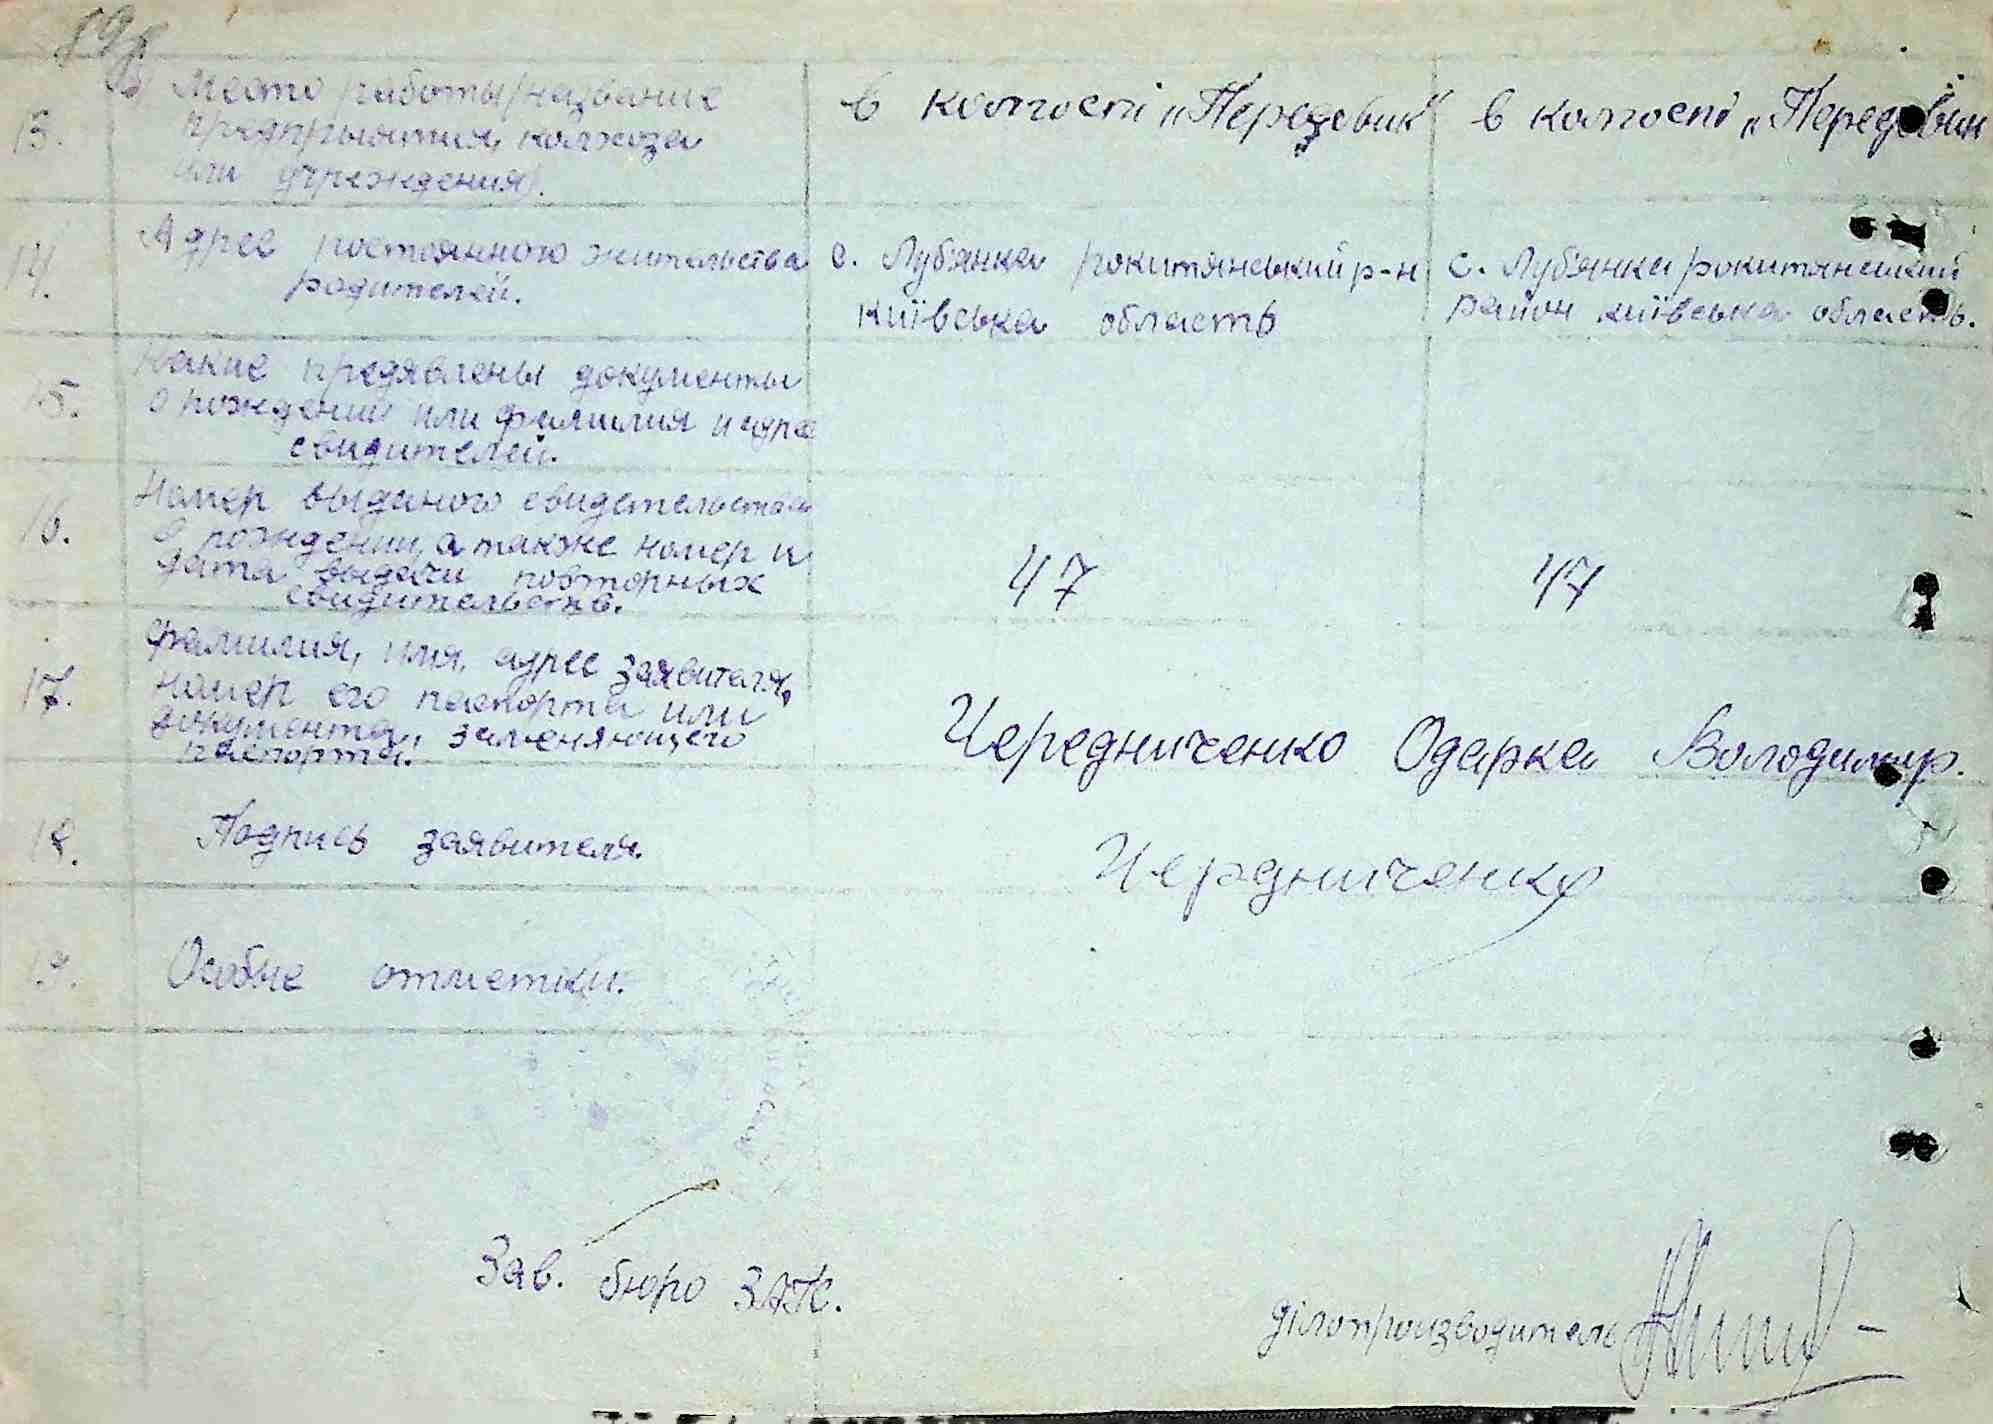 13. Место работы (название
предприятия, колхоза
или учреждения).
в колгоспі „Передовик“
в колгоспі „Передовик
14. Адрес постоянного жительства
родителей.
с. Лубянка рокитянський р-н
київська область
с. Лубянка рокитянський
район київська область.
15. Какие предявлены документы
о рождении или фамилия и адрес
свидителей.
16. Номер выданого свидетельства
о рождении, а также номер и
дата выдачи повторных
свидительств.
47
47
17. Фамилия, имя, адрес заявителя,
номер его паспорта или
документа, заменяющего
паспорта.
Чередниченко Одарка Володимир.
18. Подпись заявителя.
Чередниченко
19. Особые отметки.
Зав. бюро ЗАГС.
ділопроизводитель